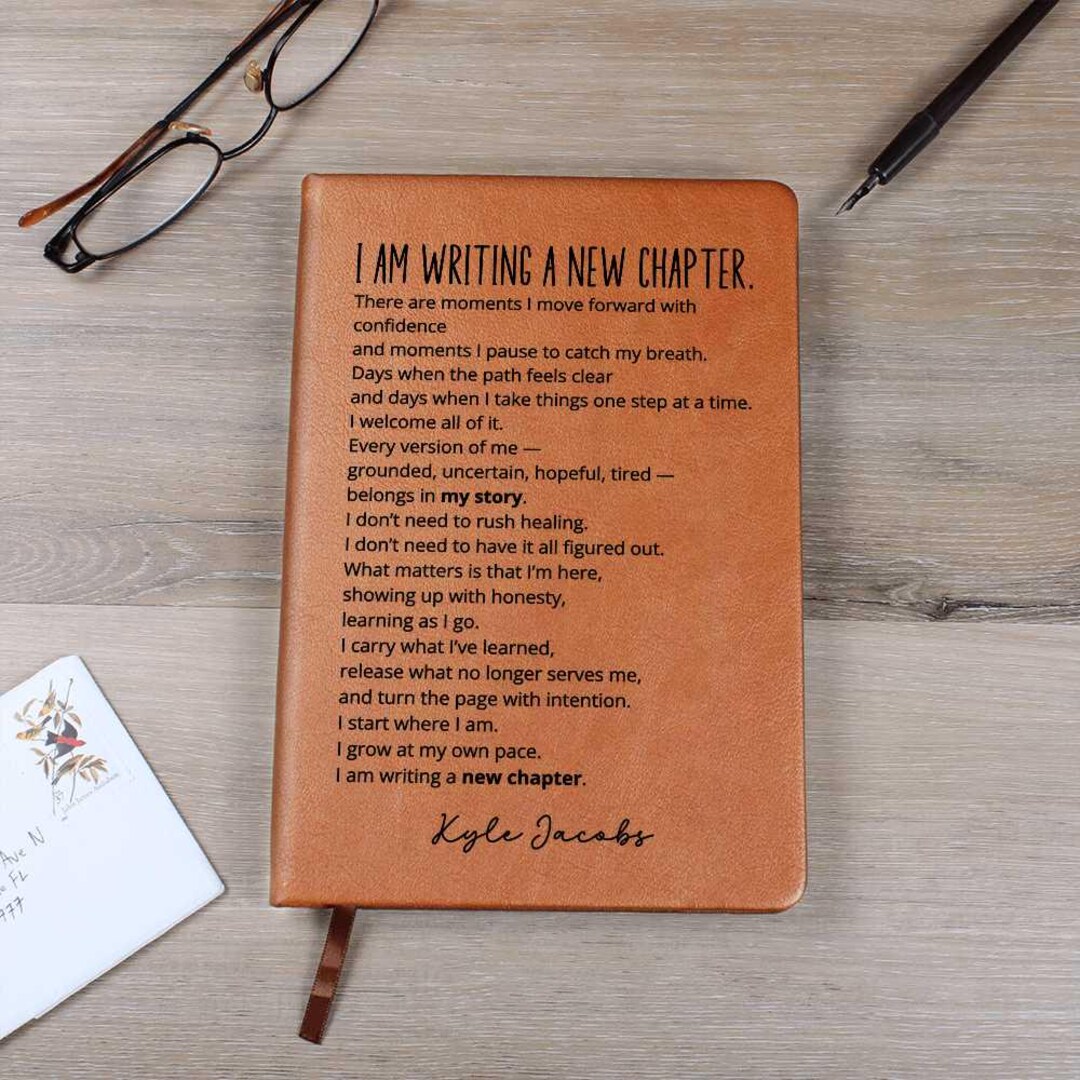 I AM WRITING A NEW CHAPTER.
There are moments I move forward with
confidence
and moments I pause to catch my breath.
Days when the path feels clear
and days when I take things one step at a time.
I welcome all of it.
Every version of me —
grounded, uncertain, hopeful, tired —
belongs in my story.
I don’t need to rush healing.
I don’t need to have it all figured out.
What matters is that I’m here,
showing up with honesty,
learning as I go.
I carry what I’ve learned,
release what no longer serves me,
and turn the page with intention.
I start where I am.
I grow at my own pace.
I am writing a new chapter.
Kyle Jacobs
Ave N
FL
977